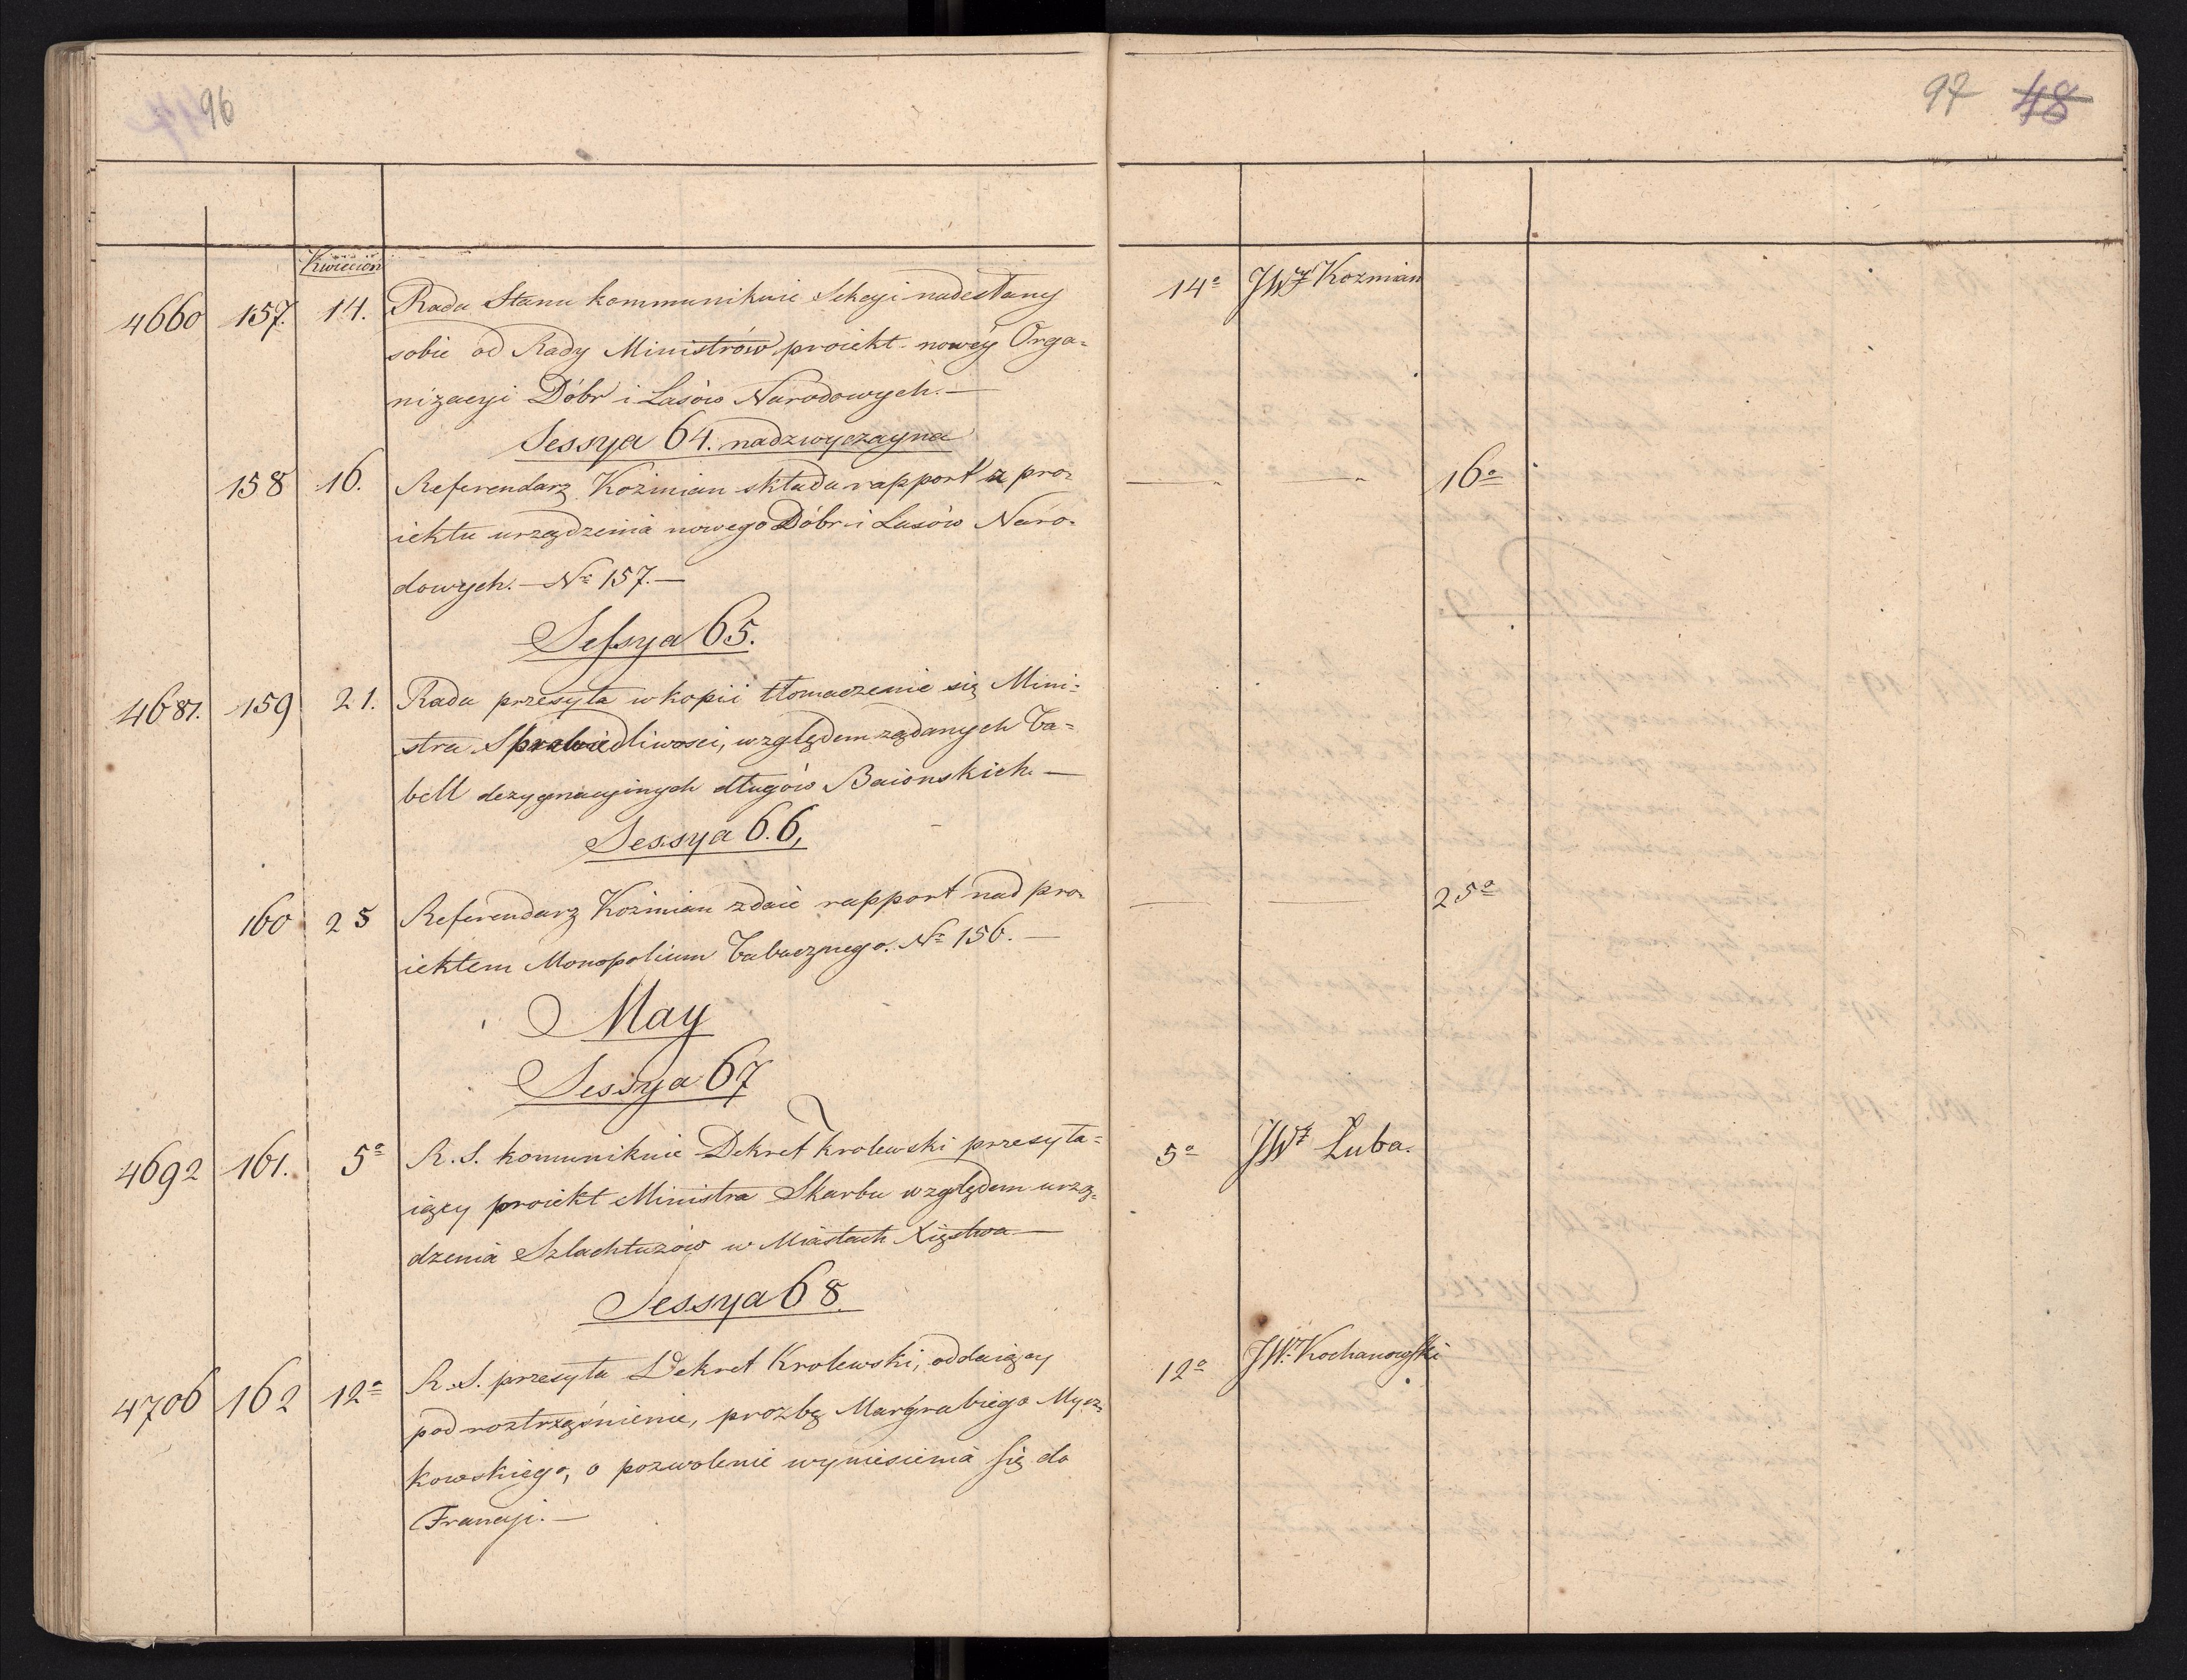 96
Kwiecień
4660 157. 14. Rada Stanu kommunikuie Sekcyi nadesłany
sobie od Rady Ministrów proiekt nowéy Orga=
nizacyi Dóbr i Lasów Narodowych.—
Sessya 64. nadzwyczayna
158 16. Referendarz Koźmian składa rapport z pro=
iektu urządzenia nowego Dóbr i Lasów Naro=
dowych.— Nr 157.—
Sessya 65.
4687. 159 21. Rada przesyła w kopii tłomaczenie się Mini=
stra Sprawiedliwości, względem żądanych Ta=
bell dezygnacyinych długów Baionskich.—
Sessya 66.
160 25 Referendarz Koźmian zdaie rapport nad pro=
iektem Monopolium Tabacznego. Nr 156.—
May
Sessya 67
4692 161. 5o R. S. komunikuie Dekret krolewski przesyła=
iący proiekt Ministra Skarbu względem urzą=
dzenia Szlachtuzów w Miastach Xięstwa—
Sessya 68
4706 162 12o R. S. przesyła Dekret Krolewski, oddaiący
pod roztrząśnienie, prozbę Margrabiego Mycz=
kowskiego, o pozwolenie wyniesienia się do
Francyi.—
97 48
14o JWy Kozmian
— — 16o
— — 25o
5o JWy Łuba.
12o JWy Kochanowski